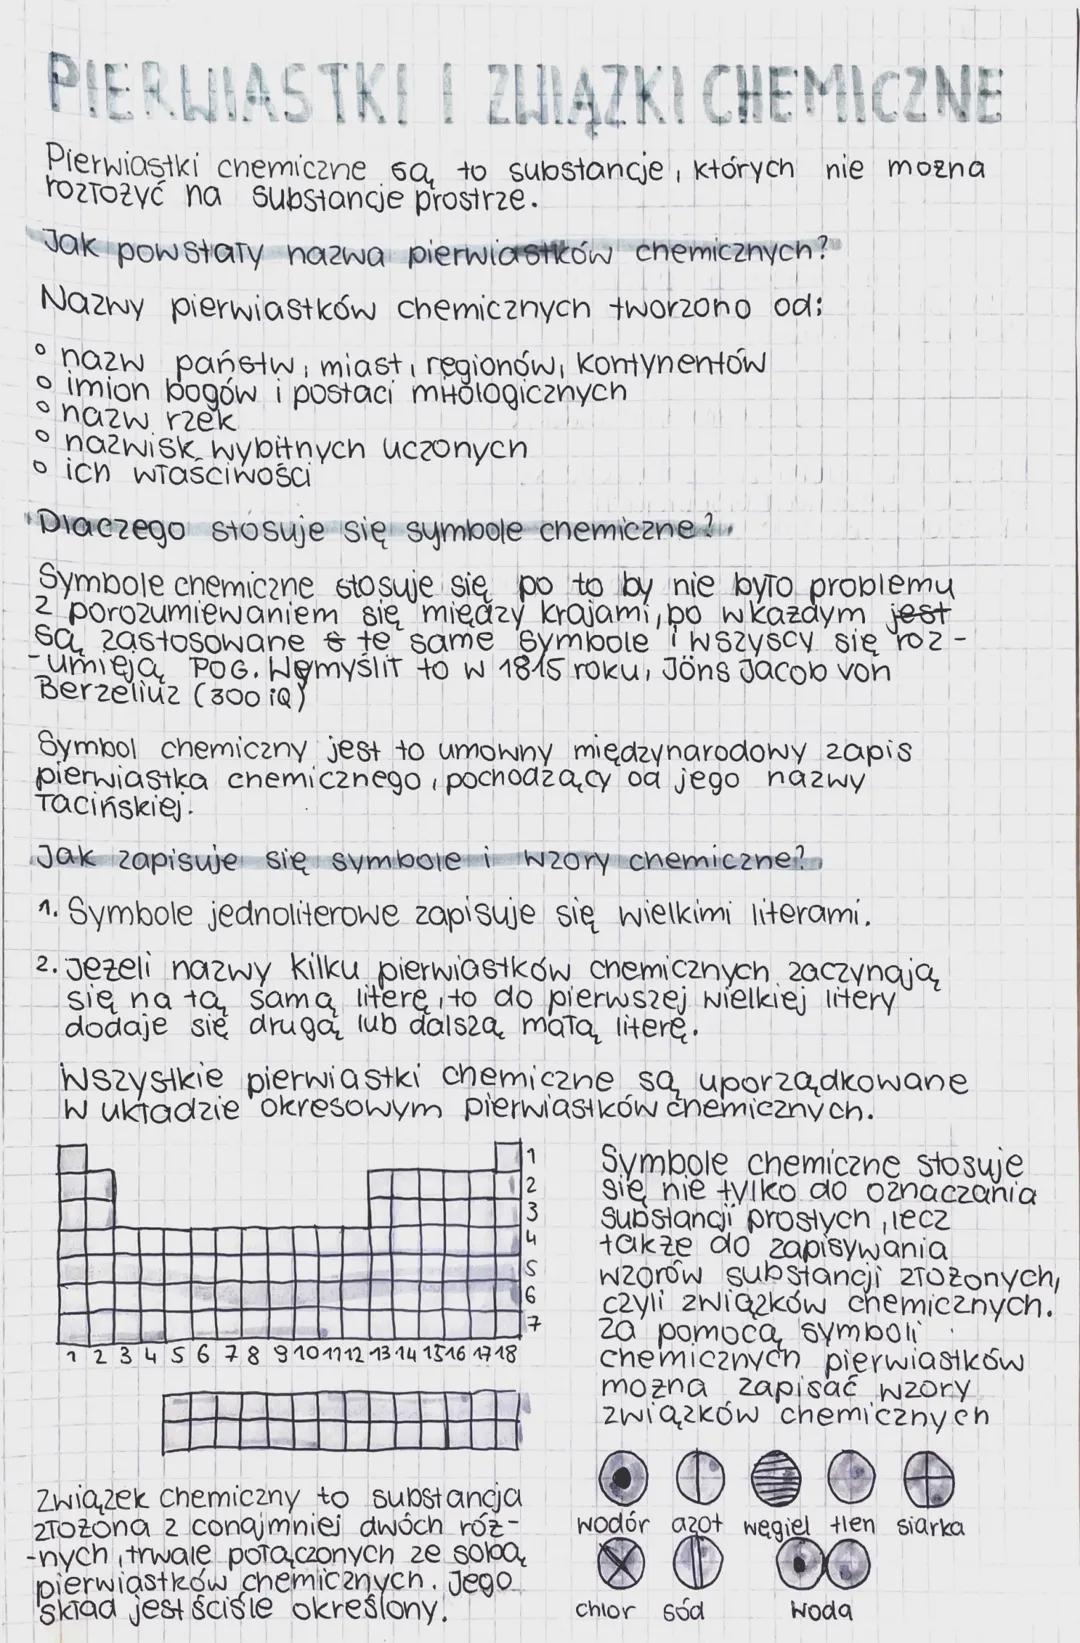 PIERWIASTKI I ZWIĄZKI CHEMICZNE
Pierwiastki chemiczne są to substancje, których nie można
rozłożyć na substancje prostrze.
Jak powstały nazwa pierwiastków chemicznych?
Nazwy pierwiastków chemicznych tworzono od:
° nazw państw, miast, regionów, kontynentów
° imion bogów i postaci mitologicznych
° nazw rzek
° nazwisk wybitnych uczonych
° ich właściwości
Dlaczego stosuje się symbole chemiczne?
Symbole chemiczne stosuje się po to by nie było problemu
z porozumiewaniem się między krajami, bo w każdym jest
są zastosowane te same symbole i wszyscy się roz-
-umieją POG. Wymyślił to w 1815 roku, Jöns Jacob von
Berzeliuz (300 iQ)
Symbol chemiczny jest to umowny międzynarodowy zapis
pierwiastka chemicznego, pochodzący od jego nazwy
łacińskiej.
Jak zapisuje się symbole i wzory chemiczne?
1. Symbole jednoliterowe zapisuje się wielkimi literami.
2. Jeżeli nazwy kilku pierwiastków chemicznych zaczynają
się na tą samą literę, to do pierwszej wielkiej litery
dodaje się drugą lub dalszą małą literę.
Wszystkie pierwiastki chemiczne są uporządkowane
w układzie okresowym pierwiastków chemicznych.
1
2
3
4
5
6
7
1 2 3 4 5 6 7 8 9 10 11 12 13 14 15 16 17 18
Symbole chemiczne stosuje
się nie tylko do oznaczania
substancji prostych, lecz
także do zapisywania
wzorów substancji złożonych,
czyli związków chemicznych.
Za pomocą symboli
chemicznych pierwiastków
można zapisać wzory
związków chemicznych
Związek chemiczny to substancja
złożona z conajmniej dwóch róż-
-nych, trwale połączonych ze sobą
pierwiastków chemicznych. Jego
skład jest ściśle określony.
wodór azot węgiel tlen siarka
chlor sód woda